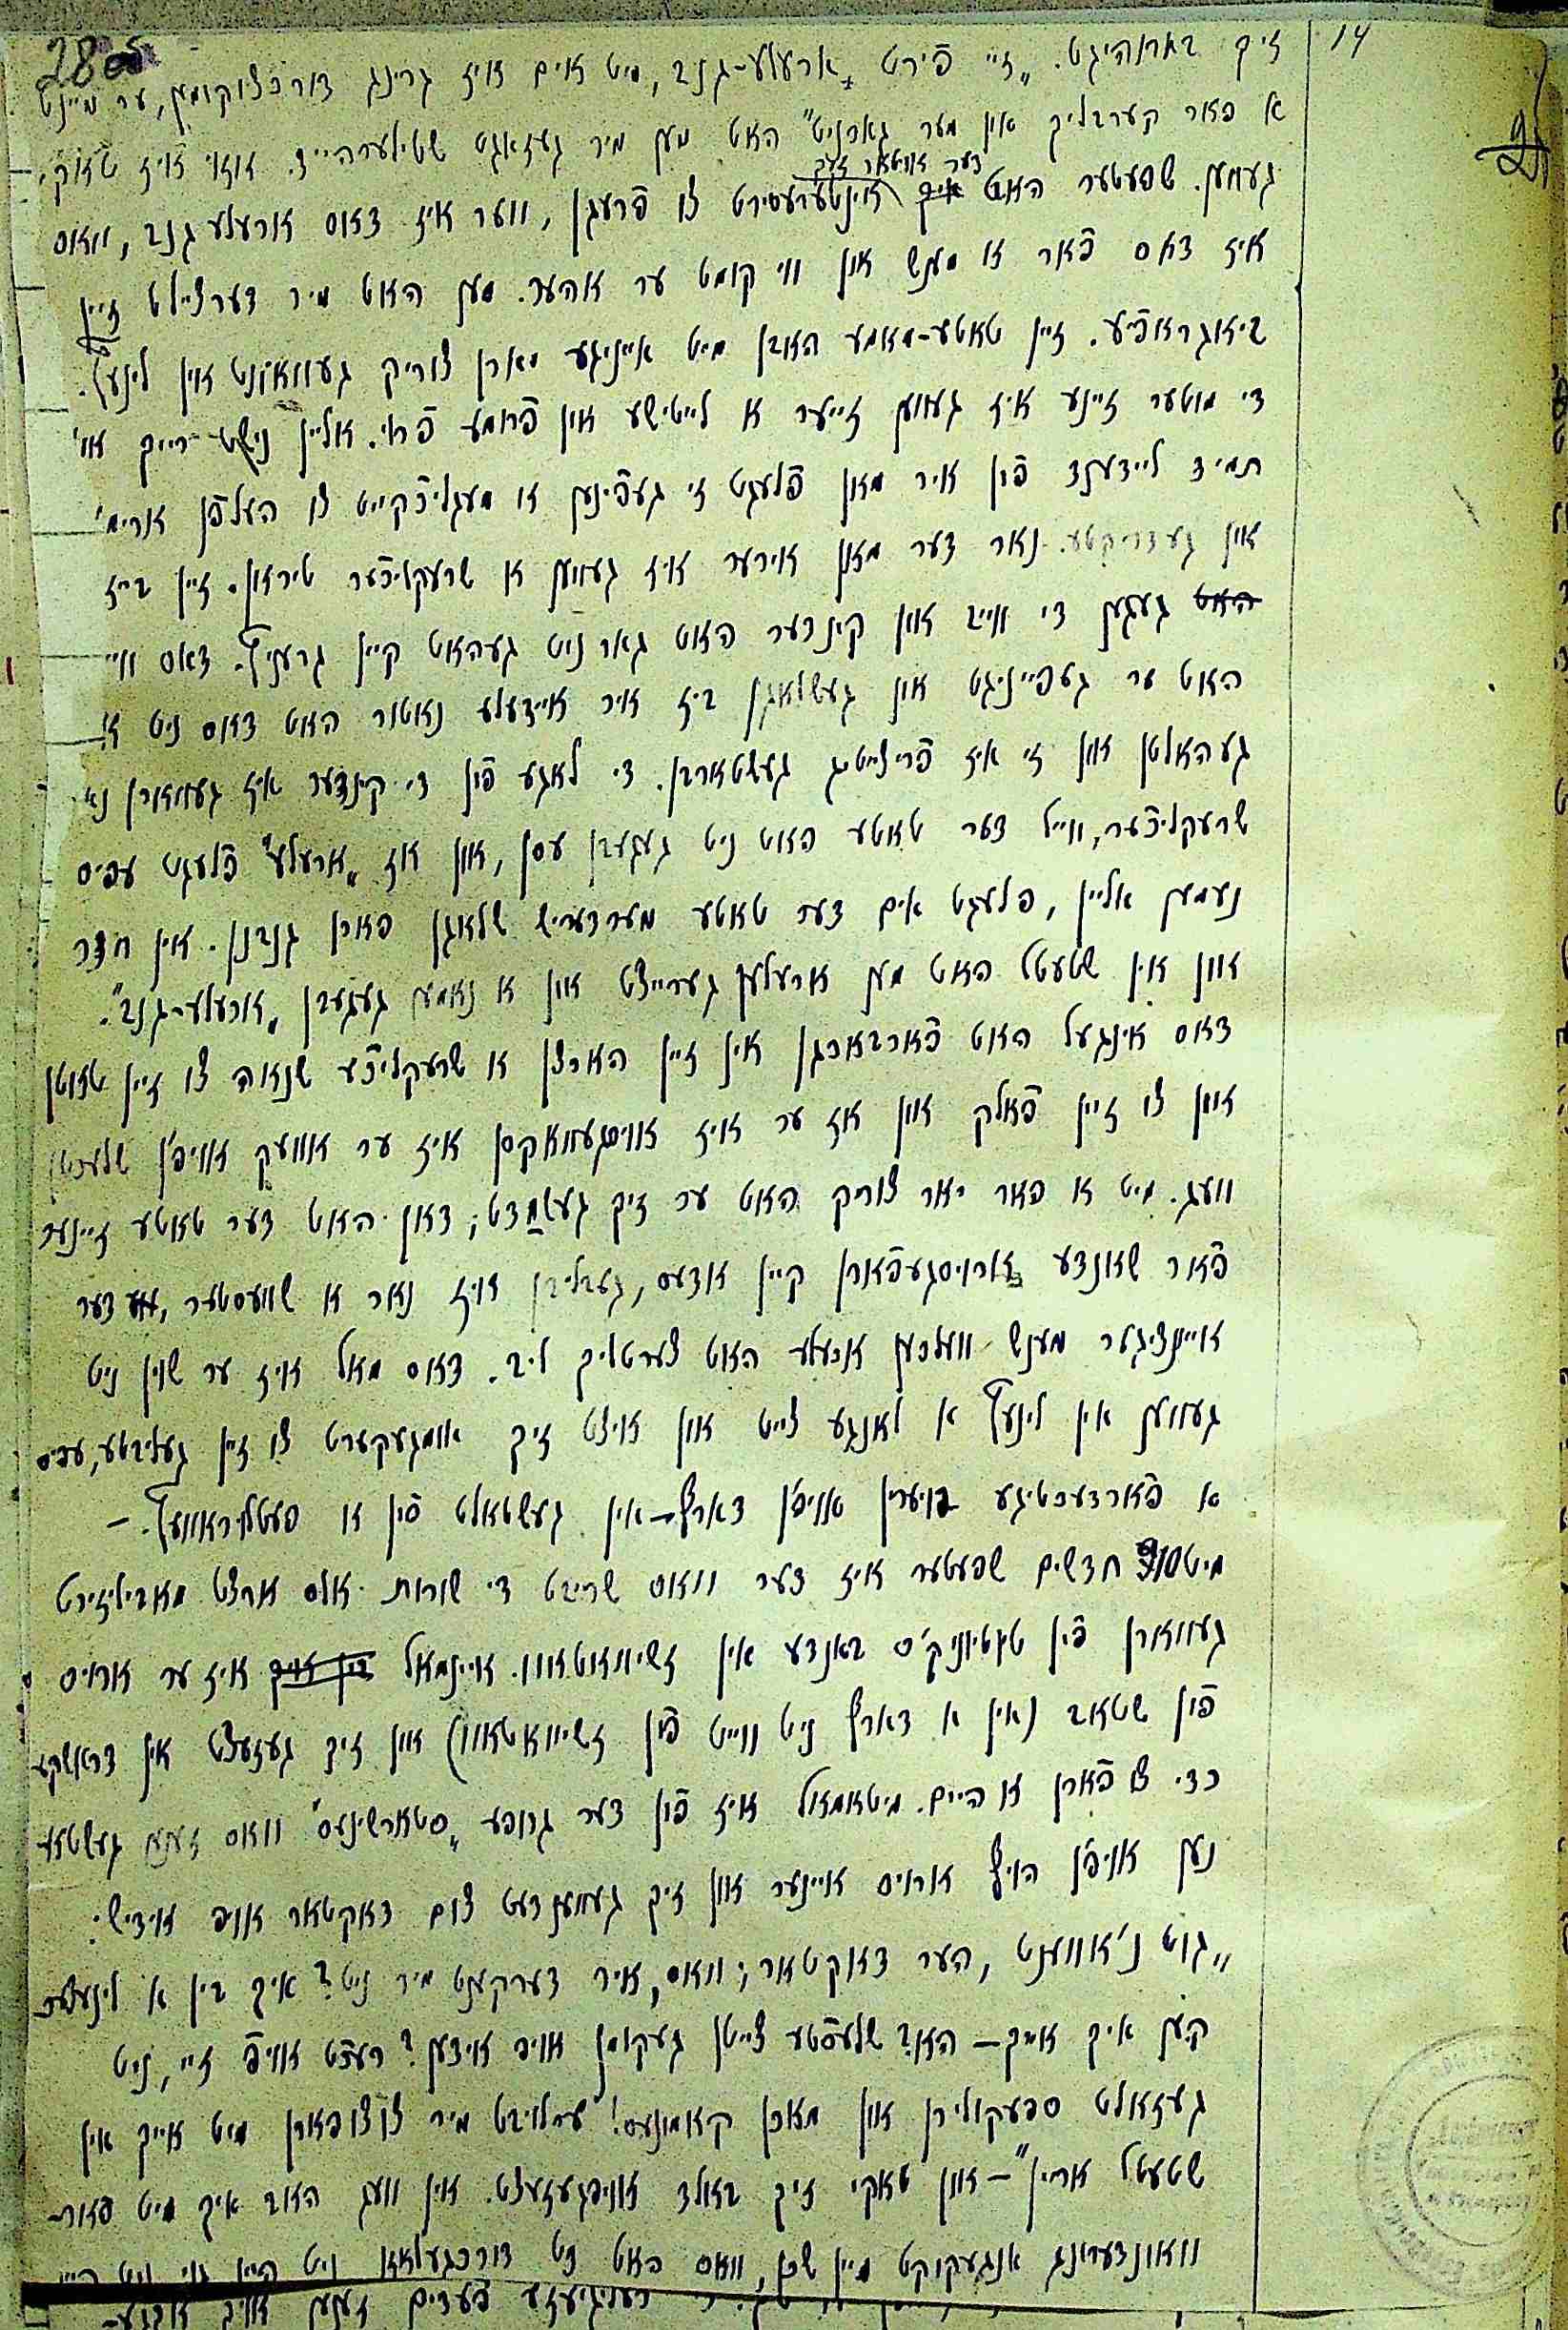 14
28
זיך בארוהיגט. „זיי פירט ארעלע-גנב, מיט אים איז גרינג דורכצוקומען, ער מיינט
א פאר קערבליך און מער גארניט" האט מען מיר געזאגט שטילערהייד. אזוי איז טאקי
געווען. שפעטער האט דער אויטאר זיך אינטערעסירט צו פרעגן, ווער איז דאס ארעלע גנב, וואס
איז דאס פאר א מענש און ווי קומט ער אהער. מען האט מיר דערציילט זיין
ביאגראפיע. זיין טאטע-מאמע האבן מיט אייניגע יארן צוריק געוואוינט אין לינעץ.
די מוטער זיינע איז געווען זייער א לייטישע און פרומע פרוי. אליין נישט רייך און
תמיד ליידענד פון איר מאן פלעגט זי געפינען א מעגליכקייט צו העלפן ארימע
און געדריקטע. נאר דער מאן אירער איז געווען א שרעקליכער טיראן. זיין בייז
געגען די ווייב און קינדער האט גאר ניט געהאט קיין גרעניץ. דאס ווייב
האט ער געפייניגט און געשלאגן ביז איר איידעלע נאטור האט דאס ניט אויס
געהאלטן און זי איז פריצייטיג געשטארבן. די לאגע פון די קינדער איז געווארן נאך
שרעקליכער, ווייל דער טאטע האט ניט געגעבן עסן, און אז „ארעלע" פלעגט עפיס
נעמען אליין, פלעגט אים דער טאטע מערדעריש שלאגן פארן גנבנן. אין חדר
און אין שטעטל האט מען ארעלען גערייצט און א נאמען געגעבן „ארעלע-גנב".
דאס אינגעל האט פארבארגן אין זיין הארצן א שרעקליכע שנאה צו זיין טאטן
און צו זיין פאלק און אז ער איז אויסגעוואקסן איז ער אוועק אויפ'ן שלעכטן
וועג. מיט א פאר יאר צוריק האט ער זיך געשמדט; דאן האט דער טאטע זיינער
פאר שאנדע ארויסגעפארן קיין אדעס, געבליבן איז נאר א שוועסטער, דער
איינציגער מענש וועלכען ארעלע האט צערטליך ליב. דאס מאל איז ער שוין ניט
געווען אין לינעץ א לאנגע צייט און איצט זיך אומגעקערט צו זיין געליבטע, עפיס
א פארדעכטיגע פויערין אויפ'ן דארף – אין געשטאלט פון א פעטליוראוועץ. –
מיט 3 חדשים שפעטער איז דער וואס שרייבט די שורות אלס ארצט מאביליזירט
געווארן פין טיוטיוניק'ס באנדע אין זשיוואטאוו. איינמאל איז ער ארויס
פון שטאב (אין א דארף ניט ווייט פון זשיוואטאוו) און זיך געזעצט אין דראשקע
כדי צו פארן א היים. מיטאמאל איז פון דער גרופע „סטארשינעס" וואס זענען געשטא-
נען אויפ'ן הויף ארויס איינער און זיך געווענדעט צום דאקטאר אויף אידיש:
„גוט נ'אוונט, הער דאקטאר; וואס, איר דערקענט מיר ניט? איך בין א לינעצער
קען איך אייך – האב שלעכטע צייטן געקומן אויף אידען? רעכט אויף זיי, ניט
געזאלט ספעקולירן און מאכן קאמונעס! ערלויבט מיר צוצופארן מיט אייך אין
שטעטל אריין" – און טאקי זיך באלד אויפגעזעצט. אין וועג האב איך מיט פאר-
וואונדערונג אנגעקוקט מיין שכן, וואס האט דורכגעלאזן ניט קיין גוי ניט קיין